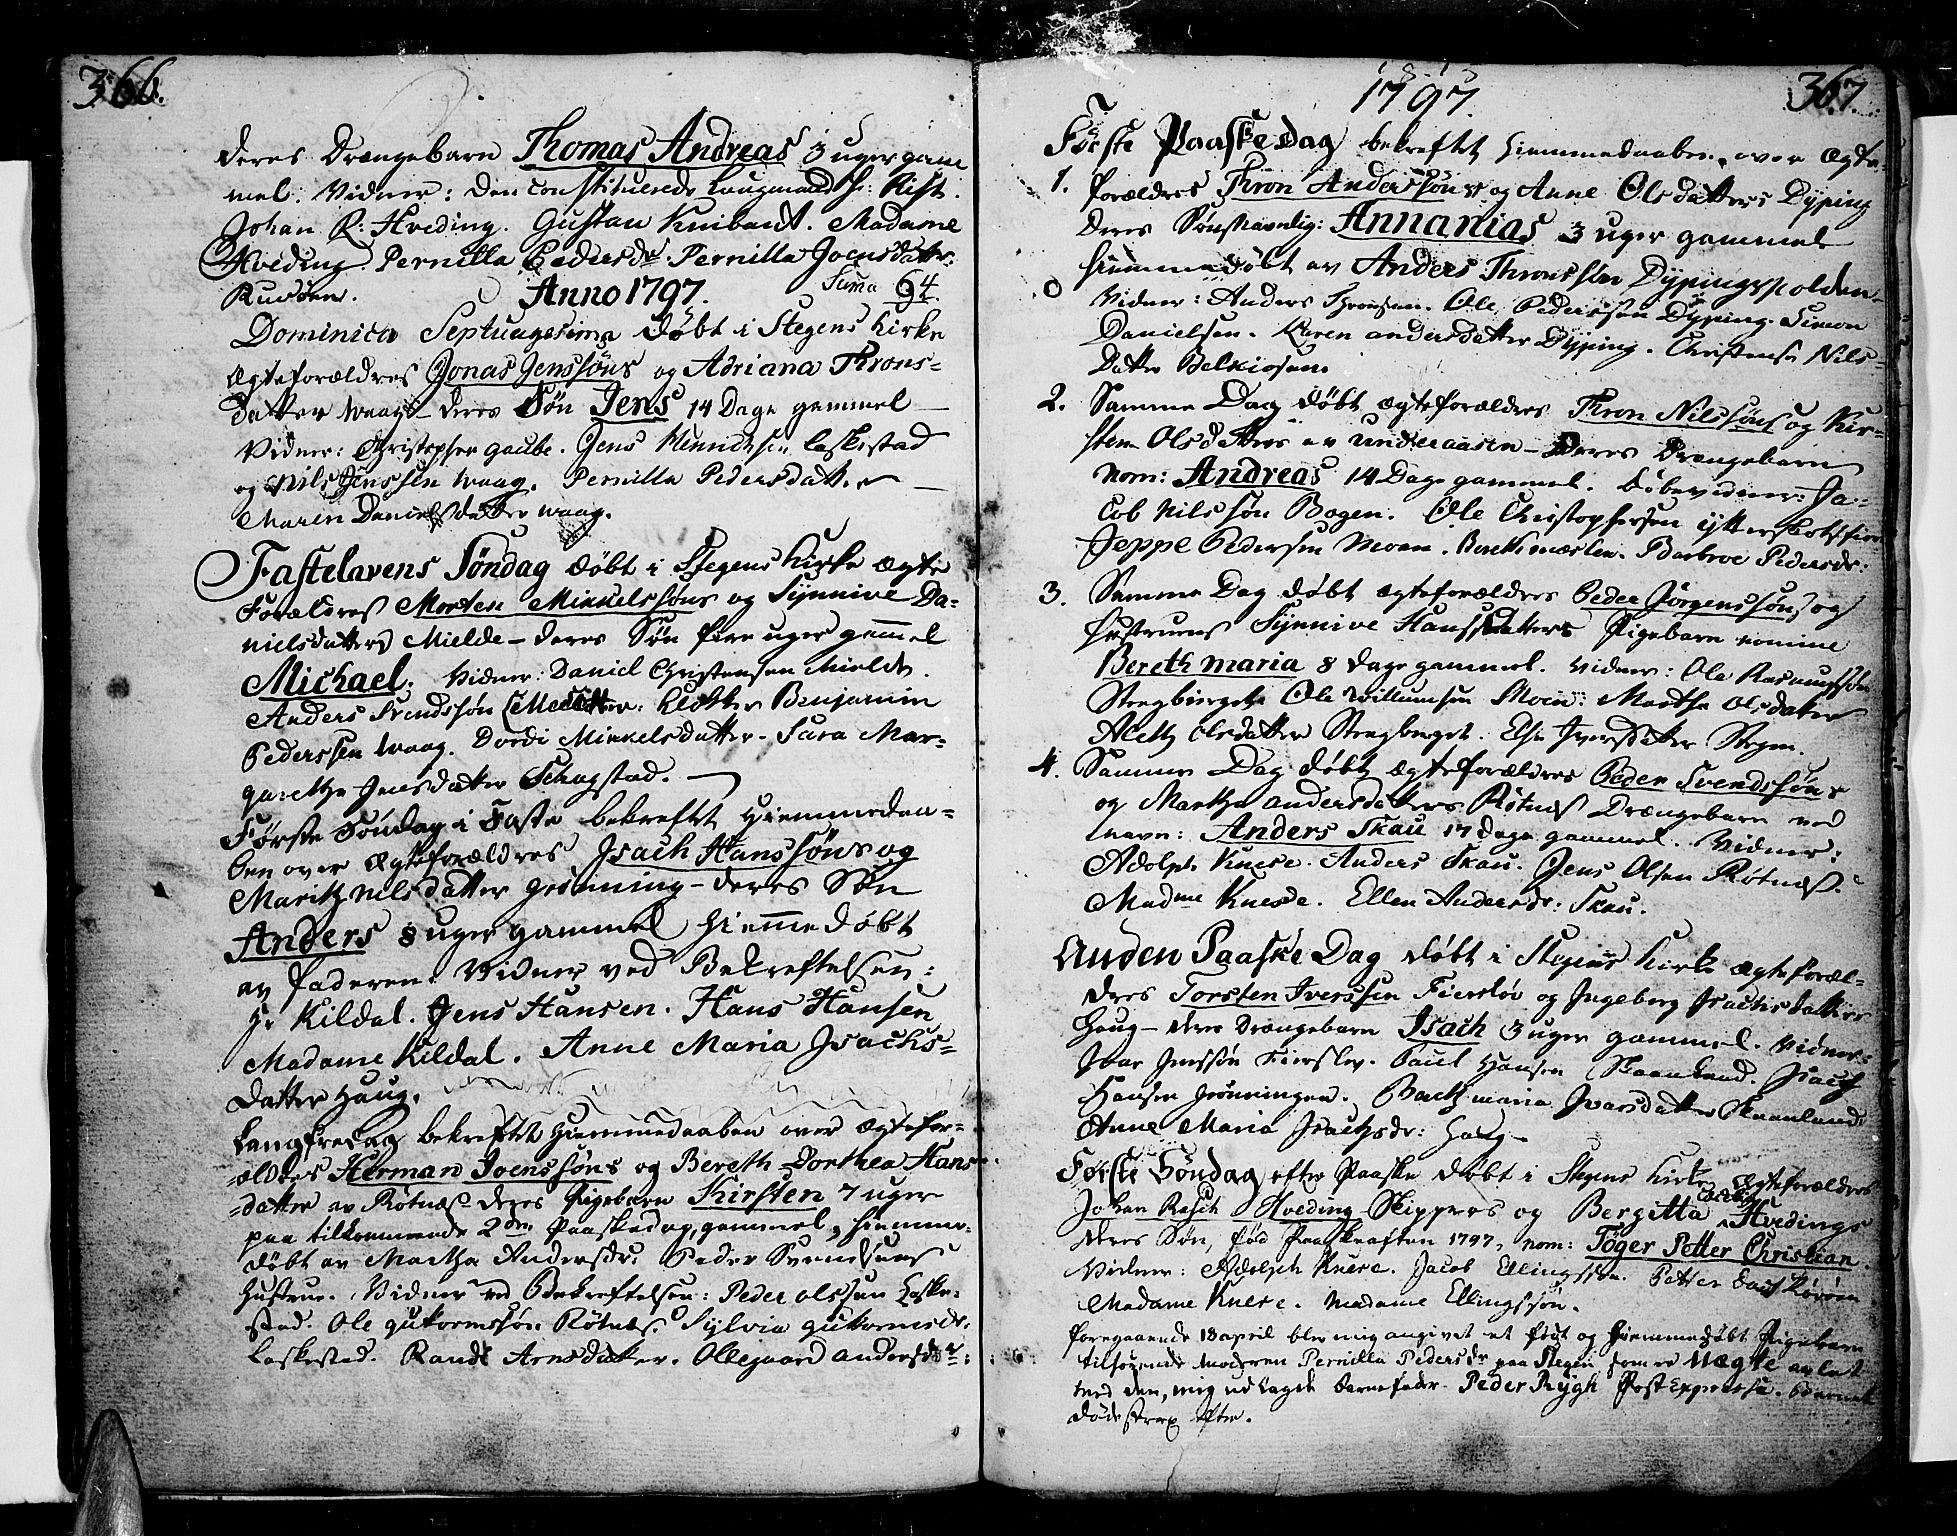 366.
deres Drængebarn Thomas Andreas 3 uger gam
mel. Vidner: Den constituerede Laugmand Hr: Rist.
Johan R: Hveding. Gustav Knibardt. Madame
Hveding. Pernilla Pedersdr. Pernilla Joensdatter
Anno 1797. Suma 64.
Dominica Septuagesima døbt i Stegens Kirke
Ægteforældres Jonas Jenssøns og Adriana Throns-
datter Waag - deres Søn Jens 14 Dage gammel
Vidner: Christopher Gaube. Jens Hendrichsen Laskestad
og Nils Jenssen Waag. Pernilla Pedersdatter
Maren Danielsdatter Waag.
Fastelavens Søndag døbt i Stegens Kirke Ægte
Forældres Morten Mikkelssøns og Synnive Da-
nielsdatters Mielde - deres Søn fire uger gammel
Michael. Vidner: Daniel Christensen Mielde.
Anders Svendssøn Klokker Benjamin
Pederssen Waag. Dordi Mikkelsdatter. Sara Mar-
garetha Jensdatter Schagstad.
Første Søndag i Faste bekreftet Hiemmedaa-
ben over Ægteforældres Isach Hanssøns og
Maritz Nilsdatter Grønning - deres Søn
Anders 8 uger gammel hiemmedøbt
av Faderen. Vidner ved Bekreftelsen:
Hr Kildal. Jens Hansen. Hans Hansen
Madame Kildal. Anne Maria Isachs-
datter Haug.
Langfredag bekreftet Hiemmedaaben over Ægtefor-
ældres Herman Joenssøns og Bereth Dorthea Hans
datter av Røtnæs deres Pigebarn Kirsten 7 uger
paa tilkommende 2den Paaskedag, gammel, hiemme-
døbt av Martha Andersdr: Peder Svendssøns
Hustrue. Vidner ved Bekreftelsen: Peder Olssen Laske-
stad. Ole Guttormssøn Røtnæs. Sylvia Guttormsdr:
Laskestad. Randi Arnsdatter. Ollegaard Andersdtr:
367.
1797.
Første Paaske Dag bekreftet Hiemmedaaben over Ægte-
1. forældres Thron Anderssøns og Anne Olsdatters Dyping
deres Søn navnlig: Annanias 3 uger gammel
hiemmedøbt av Anders Thronssøn Dypingspolden
Vidner: Anders Thronsen. Ole Pederssøn Dyping. Simon
Danielsen. Karen Andersdatter Dyping. Christense Nils-
datter
2. Samme Dag døbt Ægteforældres Thron Nilssøns og Kir-
sten Olsdatters av Underaasen - deres Drængebarn
nom: Andreas 14 Dage gammel. Døbevidner: Ja-
cob Nilssøn Bogen. Ole Christophersen
Jeppe Pedersen Moen. Barbroe Pedersdr:
3. Samme Dag døbt Ægteforældres Peder Jørgenssøns og
Hustrues Synnive Hansdatters Pigebarn nomine
Bereth Maria 8 Dage gammel. Vidner: Ole Rasmussen
Stegberget Ole Willumsen Moen: Martha Olsdatter
Aletz Olsdatter Stegberget. Else Iversdatter Stegen.
4. Samme Dag døbt Ægteforældres Peder Svendssøns
og Martha Andersdatters Røtnæs Drængebarn ved
navn: Anders Skau 17 Dage gammel. Vidner:
Adolph Knese. Anders Skau. Jens Olsen Røtnæs.
Madme Knese. Ellen Andersdr: Skau.
Anden Paaske Dag døbt i Stegens Kirke Ægteforæl-
dres Torsten Iverssen Fiersløv og Ingeborg Isachsdatters
Haug - deres Drængebarn Isach 3 uger gammel. Vidner:
Ivar Jenssøn Fierslev. Paul Hansen Skaanland. Isach
Hansen Grønningen. Maria Ivarsdatter Skaanland
Anne Maria Isachsdr: Haug -
Første Søndag efter Paaske døbt i Stegens Kirke Ægteforældres
Johan Rasch Hveding Skippers og Bergitta Hvedings
deres Søn, fød Paaskeaften 1797, nom: Töger Petter Christian.
Vidner: Adolph Knese. Jacob Ellingssøn. Petter
Madame Knese. Madame Ellingssøn.
foregaaende 18 april blev mig angivet et født og hiemmedøbt Pigebarn
tilhørende Moderen Pernilla Pedersdr paa Stegen som er uægte avlet
med den, mig udlagde Barnefader Peder Rygh Barnet
døde strax efter.